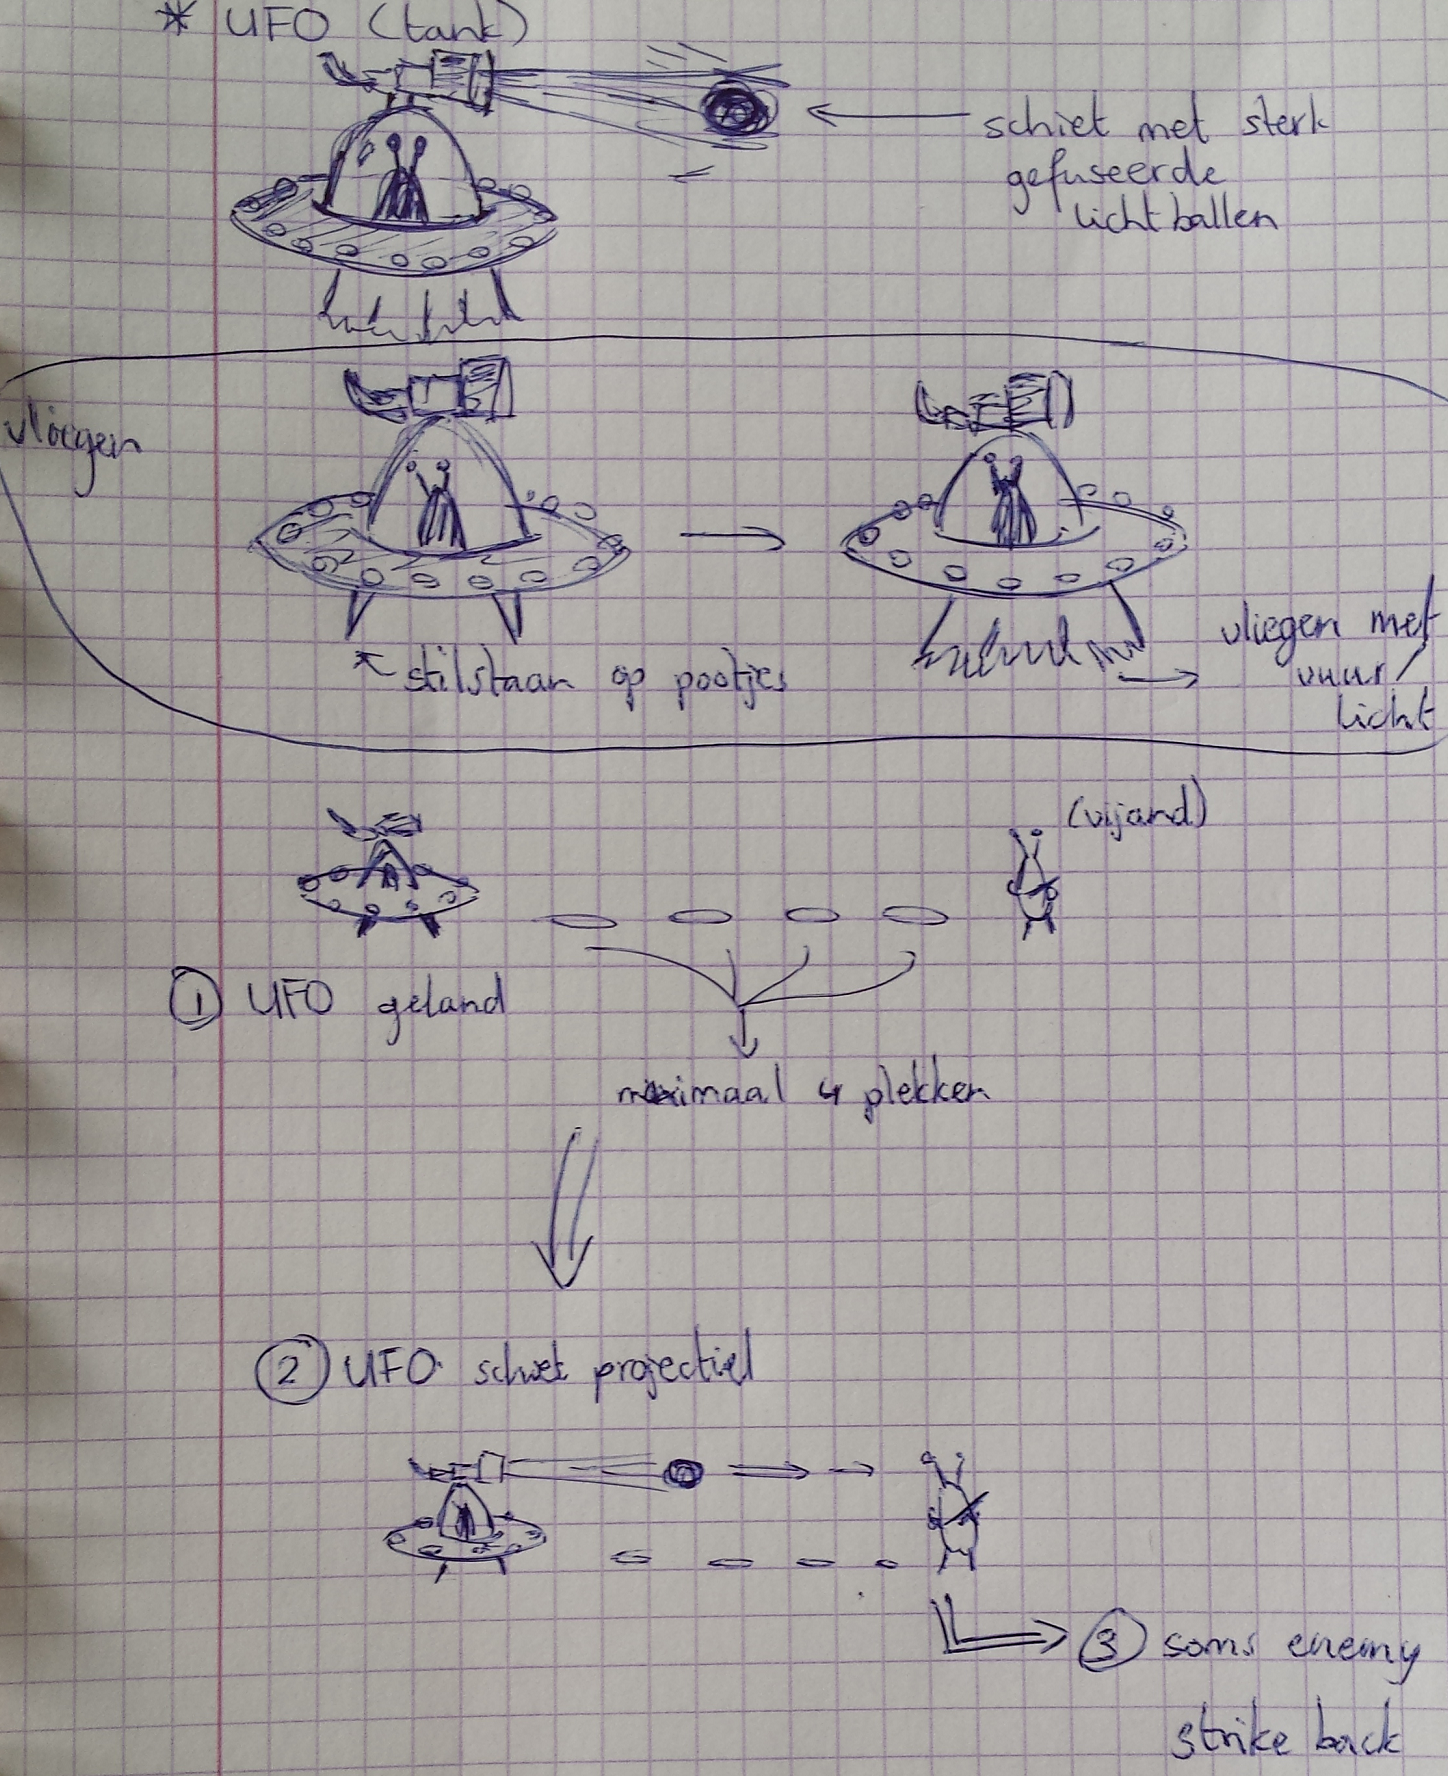 * UFO (tank)
schiet met sterk
gefuseerde
lichtballen
vliegen
stilstaan op pootjes
vliegen met
vuur/
licht
(vijand)
① UFO geland
maximaal 4 plekken
② UFO schiet projectiel
③ soms enemy
strike back